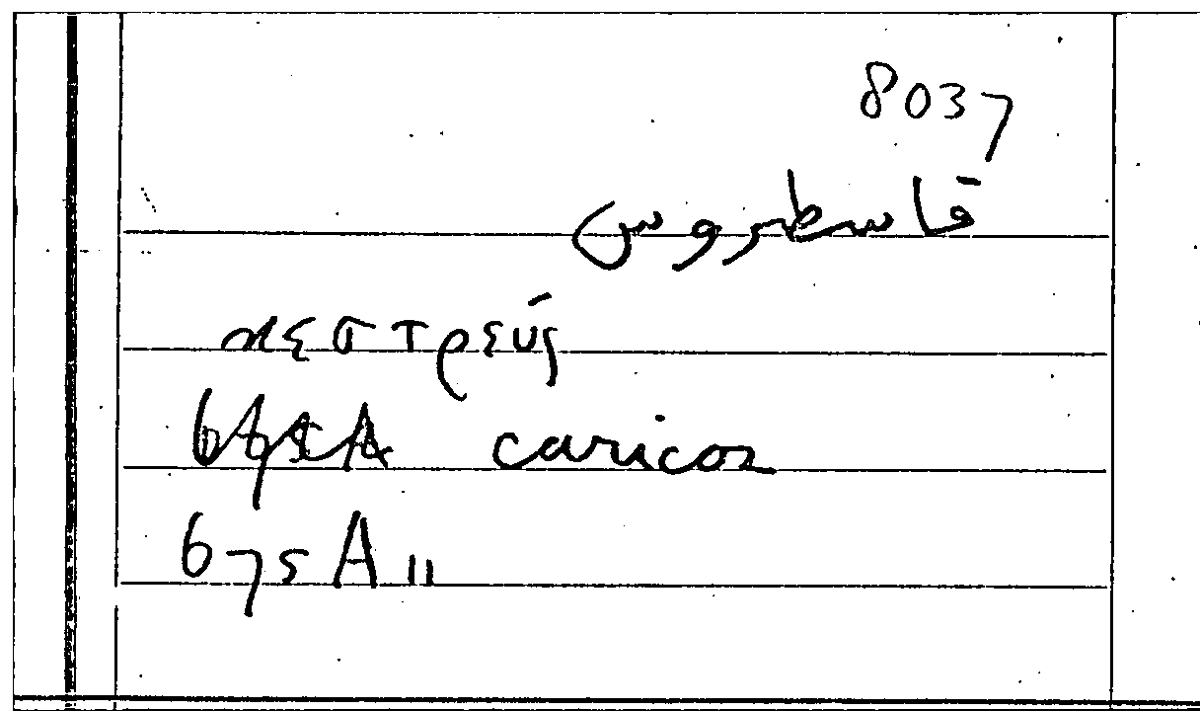 8037
قاسطروس
κεστρεύς
caricoz
675A11